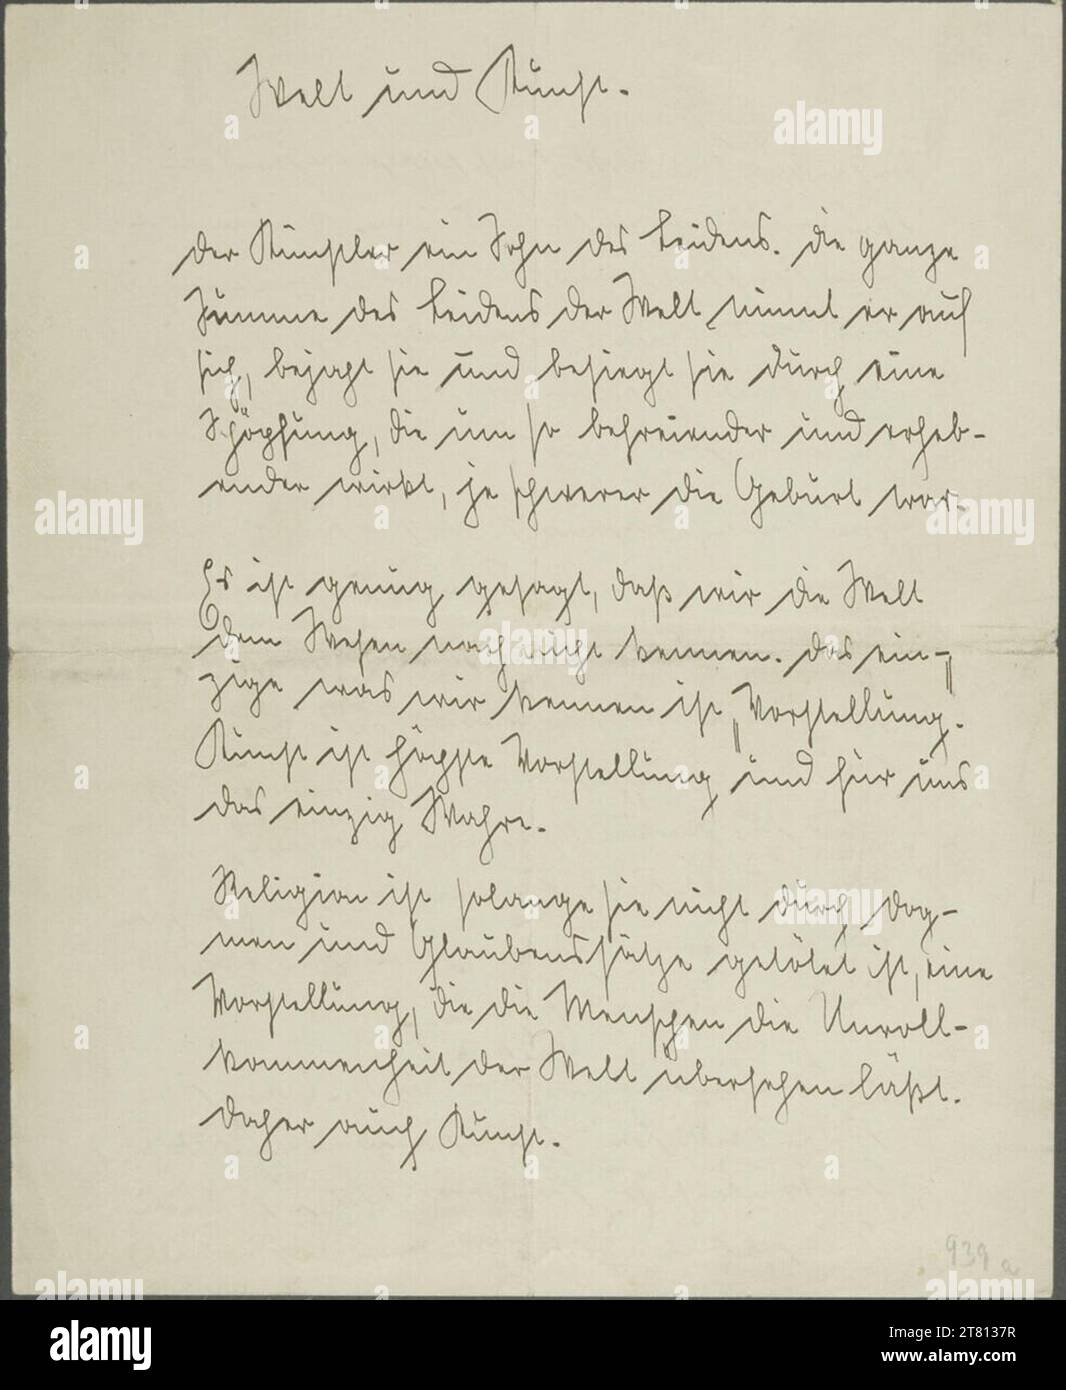 Welt und Kunst.
der Künstler ein Sohn des Leidens. die ganze
Summe des Leidens der Welt nimmt er auf
sich, bejaht sie und besiegt sie durch eine
Schöpfung, die um so befreiender und erheb-
ender wirkt, je schwerer die Geburt war.
Es ist genug gesagt, daß wir die Welt
dem Wesen nach nicht kennen. das ein-
zige was wir kennen ist „Vorstellung."
Kunst ist höchste Vorstellung und für uns
das einzig Wahre.
Religion ist solange sie nicht durch Dog-
men und Glaubenssätze getötet ist, eine
Vorstellung, die die Menschen die Unvoll-
kommenheit der Welt übersehen läßt.
daher auch Kunst.
939 a
alamy
Image ID: 2T8137R
www.alamy.com